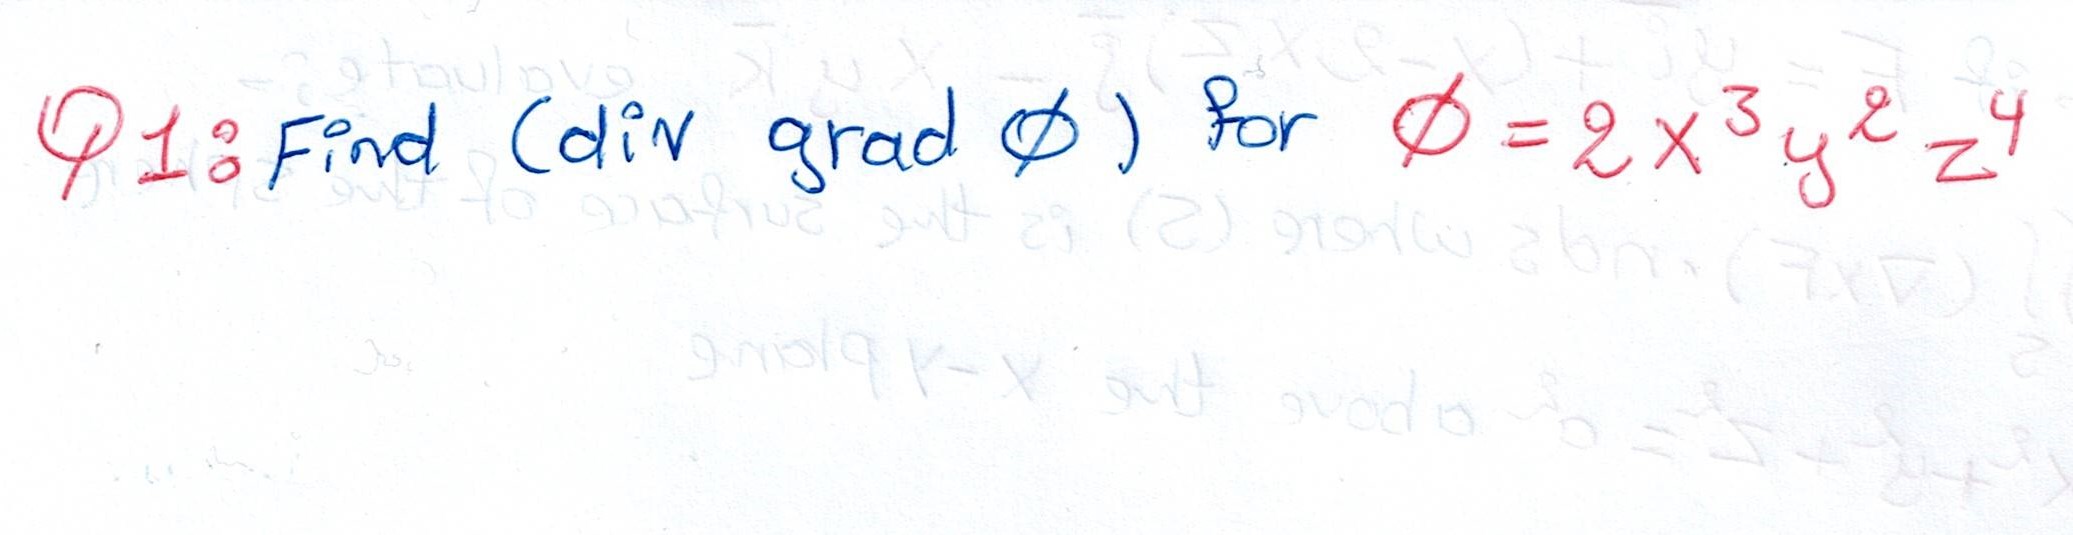 Q1: Find (div grad ∅) for ∅ = 2x³y²z⁴